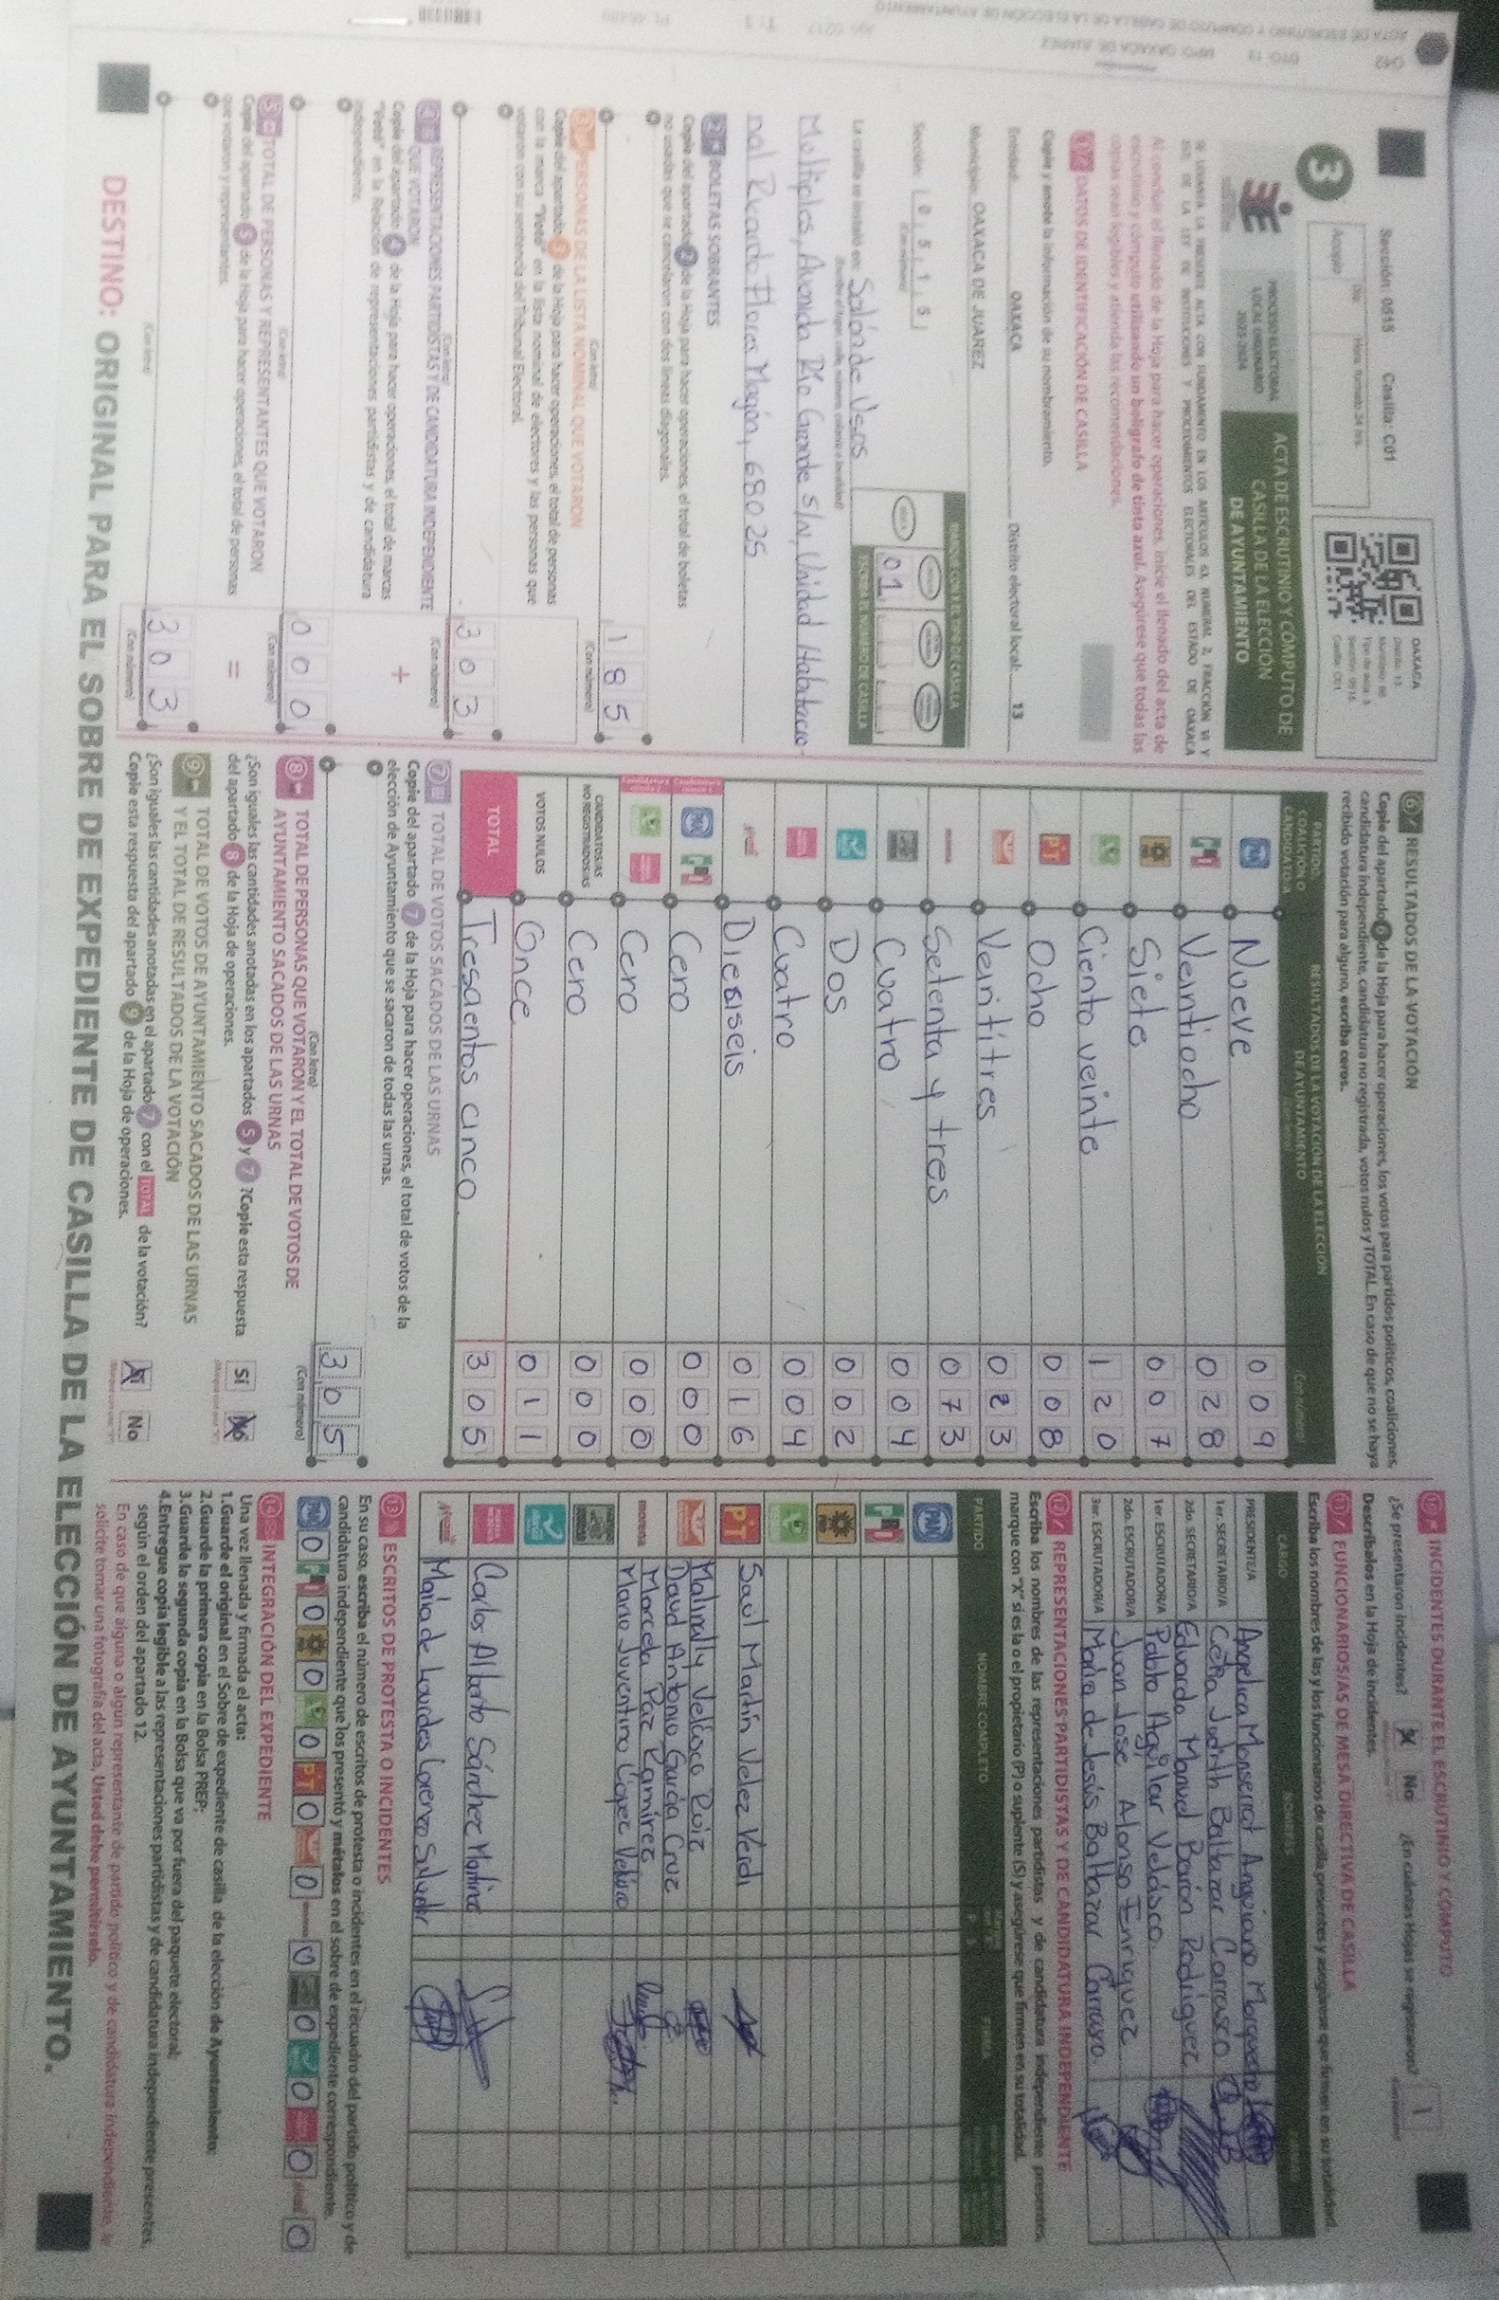 042 DTO: 13 MPIO: OAXACA DE JUAREZ
ACTA DE ESCRUTINIO Y CÓMPUTO DE CASILLA DE LA ELECCIÓN DE AYUNTAMIENTO
Sección: 0515 Casilla: C01
3
Acopio
OAXACA
PROCESO ELECTORAL
LOCAL ORDINARIO
2023-2024
ACTA DE ESCRUTINIO Y CÓMPUTO DE
CASILLA DE LA ELECCIÓN
DE AYUNTAMIENTO
SE LEVANTA LA PRESENTE ACTA CON FUNDAMENTO EN LOS ARTÍCULOS 63, NUMERAL 2, FRACCIÓN VI Y
DE LA LEY DE INSTITUCIONES Y PROCEDIMIENTOS ELECTORALES DEL ESTADO DE OAXACA
Al concluir el llenado de la Hoja para hacer operaciones, inicie el llenado del acta de
escrutinio y cómputo utilizando un bolígrafo de tinta azul. Asegúrese que todas las
copias sean legibles y atienda las recomendaciones.
1 DATOS DE IDENTIFICACIÓN DE CASILLA
Copie y anote la información de su nombramiento.
Entidad: OAXACA Distrito electoral local: 13
Municipio: OAXACA DE JUAREZ
Sección: 0515
ESCRIBA EL NÚMERO DE CASILLA
01
La casilla se instaló en: Salón de Usos
Multiples, Avenida Río Grande S/N, Unidad Habitacio-
nal Ricardo Flores Magón, 68025
2 BOLETAS SOBRANTES
Copie del apartado 2 de la Hoja para hacer operaciones, el total de boletas
no usadas que se cancelaron con dos líneas diagonales.
185
(Con letra) (Con número)
3 PERSONAS DE LA LISTA NOMINAL QUE VOTARON
Copie del apartado 3 de la Hoja para hacer operaciones, el total de personas
con la marca "Votó" en la lista nominal de electores y las personas que
votaron con su sentencia del Tribunal Electoral.
303
(Con letra) (Con número)
4 REPRESENTACIONES PARTIDISTAS Y DE CANDIDATURA INDEPENDIENTE
QUE VOTARON
Copie del apartado 4 de la Hoja para hacer operaciones, el total de marcas
"Votó" en la Relación de representaciones partidistas y de candidatura
independiente.
+
000
(Con letra) (Con número)
5 TOTAL DE PERSONAS Y REPRESENTANTES QUE VOTARON
Copie del apartado 5 de la Hoja para hacer operaciones, el total de personas
que votaron y representantes.
=
303
(Con letra) (Con número)
6 RESULTADOS DE LA VOTACIÓN
Copie del apartado 6 de la Hoja para hacer operaciones, los votos para partidos políticos, coaliciones,
candidatura independiente, candidatura no registrada, votos nulos y TOTAL. En caso de que no se haya
recibido votación para alguno, escriba ceros.
PARTIDO, COALICIÓN O CANDIDATURA RESULTADOS DE LA VOTACIÓN DE LA ELECCIÓN DE AYUNTAMIENTO (Con número)
PAN Nueve 009
PRI Veintiocho 028
PRD Siete 007
Ciento veinte 120
PT Ocho 008
Veintitres 023
morena Setenta y tres 073
Cuatro 004
Dos 002
Cuatro 004
Dieciseis 016
PAN PRI Cero 000
Cero 000
CANDIDATOS/AS NO REGISTRADOS/AS Cero 000
VOTOS NULOS Once 011
TOTAL Trescientos cinco 305
7 TOTAL DE VOTOS SACADOS DE LAS URNAS
Copie del apartado 7 de la Hoja para hacer operaciones, el total de votos de la
elección de Ayuntamiento que se sacaron de todas las urnas.
305
(Con letra) (Con número)
8 TOTAL DE PERSONAS QUE VOTARON Y EL TOTAL DE VOTOS DE
AYUNTAMIENTO SACADOS DE LAS URNAS
¿Son iguales las cantidades anotadas en los apartados 5 y 7 ? Copie esta respuesta
del apartado 8 de la Hoja de operaciones.
Sí No
9 TOTAL DE VOTOS DE AYUNTAMIENTO SACADOS DE LAS URNAS
Y EL TOTAL DE RESULTADOS DE LA VOTACIÓN
¿Son iguales las cantidades anotadas en el apartado 7 con el TOTAL de la votación?
Copie esta respuesta del apartado 9 de la Hoja de operaciones.
Sí No
10 INCIDENTES DURANTE EL ESCRUTINIO Y CÓMPUTO
¿Se presentaron incidentes? Sí No ¿En cuántas Hojas se registraron? 1
Descríbalos en la Hoja de incidentes.
11 FUNCIONARIOS/AS DE MESA DIRECTIVA DE CASILLA
Escriba los nombres de las y los funcionarios de casilla presentes y asegúrese que firmen en su totalidad.
CARGO NOMBRES
PRESIDENTE/A Angelica Monserrat Angeiano
1er. SECRETARIO/A Judith Baltazar Carrasco
2do. SECRETARIO/A Eduardo Manuel Barón Rodriguez
1er. ESCRUTADOR/A Pablo Aguilar Velásco
2do. ESCRUTADOR/A Juan Jose Alonso Enriquez
3er. ESCRUTADOR/A María de Jesús Baltazar Carrasco
12 REPRESENTACIONES PARTIDISTAS Y DE CANDIDATURA INDEPENDIENTE
Escriba los nombres de las representaciones partidistas y de candidatura independiente presentes,
marque con "X" si es la o el propietario (P) o suplente (S) y asegúrese que firmen en su totalidad.
PARTIDO NOMBRE COMPLETO FIRMA
PAN
PRI
PRD
PT Saul Martín Velez
Malinally Velásco Ruiz
David Antonio García Cruz
morena Marcela Paz Ramírez
Mario Juventino López Velásco
Carlos Alberto Sánchez Martínez
Maria de Lourdes Lorenzo Salvador
13 ESCRITOS DE PROTESTA O INCIDENTES
En su caso, escriba el número de escritos de protesta o incidentes en el recuadro del partido político y de
candidatura independiente que los presentó y métalos en el sobre de expediente correspondiente.
PAN 0 PRI 0 PRD 0 0 PT 0 0 morena 0 0 0 0 0
14 INTEGRACIÓN DEL EXPEDIENTE
Una vez llenada y firmada el acta:
1.Guarde el original en el Sobre de expediente de casilla de la elección de Ayuntamiento;
2.Guarde la primera copia en la Bolsa PREP;
3.Guarde la segunda copia en la Bolsa que va por fuera del paquete electoral;
4.Entregue copia legible a las representaciones partidistas y de candidatura independiente presentes,
según el orden del apartado 12.
En caso de que alguna o algún representante de partido político y de candidatura independiente, le
solicite tomar una fotografía del acta, Usted debe permitírselo.
DESTINO: ORIGINAL PARA EL SOBRE DE EXPEDIENTE DE CASILLA DE LA ELECCIÓN DE AYUNTAMIENTO.